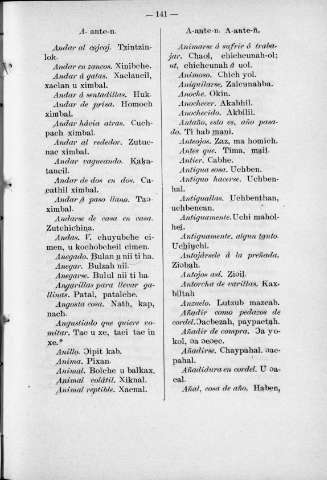 — 141 —
A- ante-n.
Andar al cojcoj. Txintzin-
lok.
Andar en zancos. Xinibche.
Andar á gatas. Xaclancil,
xaclan u ximbal.
Andar á sentadillas. Huk.
Andar de prisa. Homoch
ximbal.
Andar hácia atras. Cuch-
pach ximbal.
Andar al rededor. Zutuc-
nac ximbal.
Andar vagueando. Kaka-
tancil.
Andar de dos en dos. Ca-
cathil ximbal.
Andar á paso llano. Tao-
ximbal.
Andarse de casa en casa.
Zutchichina.
Andas. V. chuyubche ci-
men, u kochobcheil cimen.
Anegado. Bulan u nii ti ha.
Anegar. Bulzah nil.
Anegarse. Bulul nii ti ha
Angarillas para llevar ga-
llinas. Patal, patalche.
Angosta cosa. Nath, kap,
nach.
Angustiado que quiere vo-
mitar. Tac u xe, taci tac in
xe.*
Anillo. Ɔipit kab.
Anima. Pixan
Animal. Bolche u balkax.
Animal volátil. Xiknal.
Animal reptible. Xacnal.
A-ante-n. A-ante-ñ.
Animarse á sufrir ó traba-
jar. Chaol, chichcunah-ol;
ot, chichcunah á uol.
Animoso. Chich yol.
Aniquilarse, Zalcunahba.
Anoche. Okin.
Anochecer. Akabhil.
Anochecido. Akbilil.
Antaño, esto es, año pasa-
do. Ti hab mani.
Anteojos. Zaz, ma homich.
Antes que. Tima, mail.
Antier. Cabhe.
Antigua cosa. Uchben.
Antiguo hacerse. Uchben-
hal.
Antiguallas. Uchbenthan,
uchbencan.
Antiguamente. Uchi mahol-
hei.
Antiguamente, algun tanto.
Uchiychi.
Antojársele á la preñada,
Ziobah.
Antojos asi. Zioil.
Antorcha de varillas. Kax-
biltah
Anzuelo. Lutzub mazcab.
Añadir como pedazos de
cordel. Ɔacbezah, paypactah.
Añadir de compra. Ɔa yo-
kol, ɔa ɔeɔec.
Añadirse. Chaypahal. ɔac-
pahal.
Añadidura en cordel. U ɔa-
cal.
Añal, cosa de año. Haben,